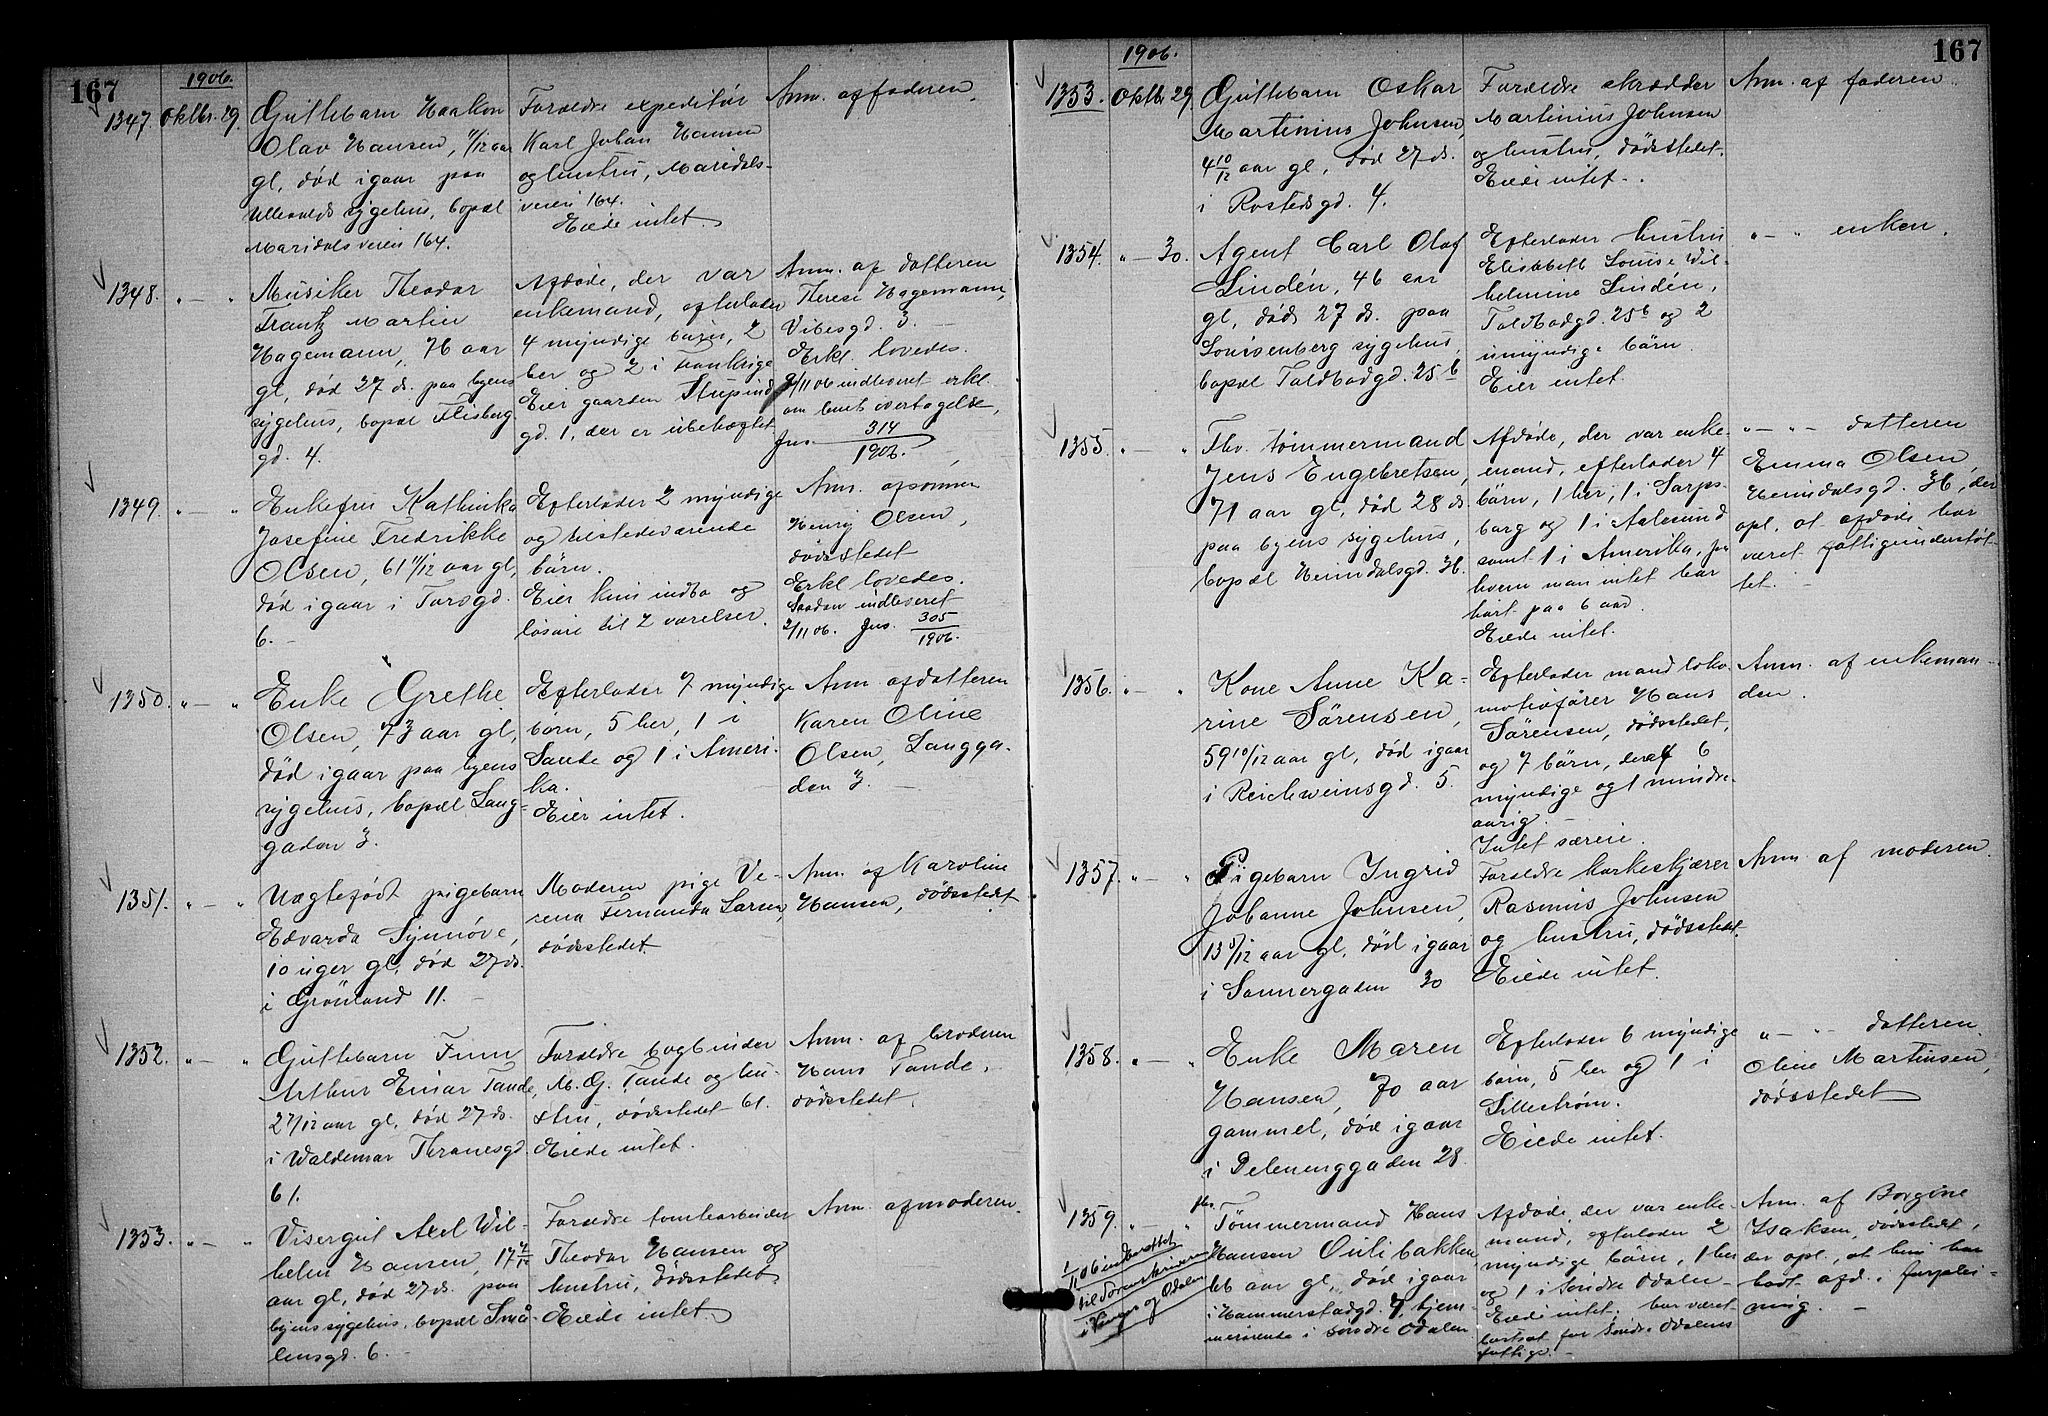 167
1906.
1347. Oktbr. 29.
Guttebarn Haakon
Olav Hansen, 11/12 aar
gl, død igaar paa
Ullevolds sygehus, bopæl
Maridalsveien 164.
Forældre expeditør
Karl Johan Hansen
og hustru, Maridals-
veien 164.
Eiede intet.
Anm. af faderen.
1348. " — "
Musiker Theodor
Frantz Martin
Hagemann, 76 aar
gl, død 27 ds. paa byens
sygehus, bopæl Flisberg
gd. 4.
Afdøde, der var
enkemand, efterlader
4 myndige børn, 2
her og 2 i Frankrige
Eier gaarden Stupind
gd. 1, der er ubehæftet.
Anm. af datteren
Therese Hagemann,
Vibesgd. 3.
Erkl. lovedes.
9/11 06 indleveret erkl.
om boets overtagelse,
Jns. 314/1906.
1349. " — "
Enkefru Kathinka
Josefine Fredrikke
Olsen, 61 11/12 aar gl,
død igaar i Torvgd.
6. -
Efterlader 2 myndige
og tilstedeværende
børn.
Eier kun indbo og
løsøre til 2 værelser.
Anm. af sønnen
Henry Olsen,
dødsstedet
Erkl lovedes.
Saadan indleveret
2/11 06. Jns. 305/1906.
1350. " — "
Enke Grethe
Olsen, 73 aar gl,
død igaar paa byens
sygehus, bopæl Lang-
gaden 3.
Efterlader 7 myndige
børn, 5 her, 1 i
Sande og 1 i Ameri-
ka.
Eier intet.
Anm af datteren
Karen Oline
Olsen, Langga-
den 3. -
1351. " — "
Uægtefødt pigebarn
Edvarda Synnøve,
10 uger gl, død 27 ds.
i Grønland 11. -
Moderen pige Ve-
rena Fernanda Larsen,
dødsstedet.
Anm. af Karoline
Hansen, dødsstedet
1352. " — "
Guttebarn Finn
Arthur Einar Tande,
2 7/12 aar gl, død 27 ds.
i Waldemar Thranesgd.
61.
Forældre bogbinder
M. G. Tande og hu-
stru, dødsstedet 61.
Eiede intet.
Anm. af broderen
Hans Tande,
dødsstedet.
1353. " — "
Visergut Axel Wil-
helm Hansen, 17 4/12
aar gl, død 27 ds. paa
byens sygehus, bopæl Små-
lensgd. 6. -
Forældre tomtearbeider
Theodor Hansen og
hustru, dødsstedet
Eiede intet.
Anm. af moderen.
167
1906.
1353. Oktbr 29.
Guttebarn Oskar
Martinius Johnsen,
4 10/12 aar gl, død 27 ds.
i Rostedsgd. 4.
Forældre skrædder
Martinius Johnsen
og hustru, dødsstedet.
Eiede intet -.
Anm. af faderen
1354. " — 30.
Agent Carl Olof
Lindén, 46 aar
gl, døds 27 ds. paa
Louisenberg sygehus,
bopæl Toldbodgd. 25 b
Efterlader hustru
Elisabeth Louise Wil-
helmine Lindén,
Toldbodgd. 25 b og 2
umyndige børn.
Eier intet.
" — " enken.
1355. " — "
Fhv. tømmermand
Jens Engebretsen,
71 aar gl, død 28 ds
paa byens sygehus,
bopæl Heimdalsgd. 36.
Afdøde, der var enke-
mand, efterlader 4
børn, 1 her, 1 i Sarps-
borg og 1 i Aalesund
samt 1 i Amerika, fra
hvem man intet har
hørt paa 6 aar.
Eiede intet.
" — " datteren
Emma Olsen,
Heimdalsgd. 36, der
opl. at afdøde har
været fattigunderstøt-
tet. -
1356. " — "
Kone Anne Ka-
rine Sørensen,
59 10/12 aar gl, død igaar
i Reichweinsgd. 5.
Efterlader mand loko-
motivfører Hans
Sørensen, dødsstedet,
og 7 børn, deraf 6
myndige og 1 mindre-
aarig. -
Intet særeie.
Anm. af enkeman-
den.
1357. " — "
Pigebarn Ingrid
Johanne Johnsen,
13 5/12 aar gl, død igaar
i Sannergaden 30
Forældre korkeskjærer
Rasmus Johnsen
og hustru, dødsstedet.
Eiede intet.
Anm. af moderen.
1358. " — "
Enke Maren
Hansen, 70 aar
gammel, død igaar
i Delenenggaden 28.
Efterlader 6 myndige
børn, 5 her og 1 i
Lillestrøm.
Eiede intet.
" — " datteren
Oline Martinsen,
dødsstedet
1359. " — "
1/11 06 indberettet
til Sorenskriveren
i Vinger og Odalen
fhv.
Tømmermand Hans
Hansen Oulibakken,
66 aar gl, død igaar
i Hammerstadgd. 7 hjem-
mørende i søndre Odalen
Afdøde, der var enke-
mand, efterlader 2
myndige børn, 1 her
og 1 i søndre Odalen -
Eiede intet, har været
bortsat for Søndre Odalens
fattige. -
Anm. af Borgine
Isaksen, dødsstedet,
der opl., at hun har
havt afd. i forplei-
ning. -